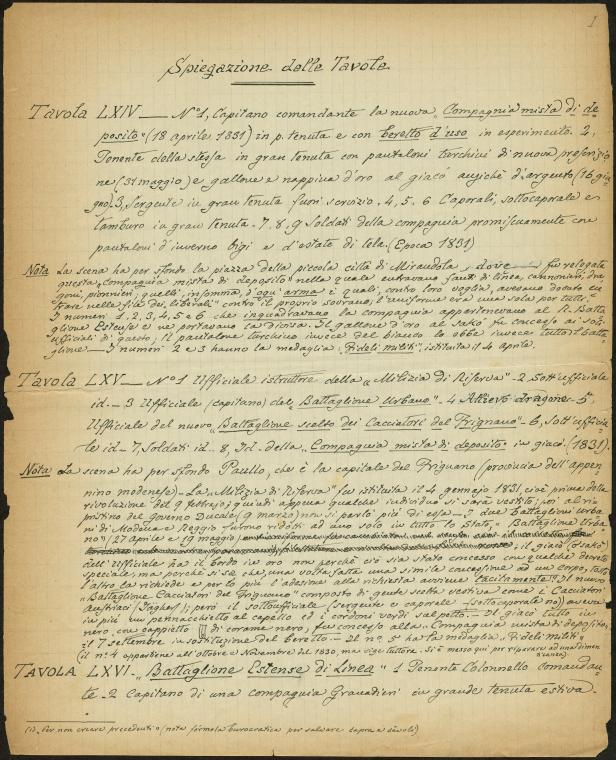 1
Spiegazione delle Tavole
Tavola LXIV — N°1, Capitano comandante la nuova „Compagnia mista di de-
posito" (18 aprile 1831) in p. tenuta e con beretto d'uso in esperimento. 2,
Tenente della stessa in gran tenuta con pantaloni turchini di nuova prescrizio-
ne (31 maggio) e gallone e nappina d'oro al giacò anzichè d'argento (16 giu-
gno) 3, Sergente in gran tenuta fuori servizio. 4, 5. 6 Caporali, sottocaporale e
tamburo in gran tenuta. 7, 8, 9 Soldati della compagnia promiscuamente con
pantaloni d'inverno bigi e d'estate di tela. (Epoca 1831)
Nota La scena ha per sfondo la piazza della piccola città di Mirandola, dove fu relegata
questa „compagnia mista di deposito" nella quale entravano fanti di linea, cannonieri, dra-
goni, pionnieri, quelli insomma d'ogni arma i quali, contro loro voglia, avevano dovuto en-
trare nelle file dei „liberali" contro il proprio sovrano; l'uniforme era una sola per tutti.
I numeri 1, 2, 3, 4, 5 e 6 che inquadravano la compagnia appartenevano al R. Batta-
glione Estense e ne portavano la divisa. Il gallone d'oro al sakò fu concesso ai sott'
ufficiali di questo, il pantalone turchino invece del bianco lo ebbe invece tutto il batta-
glione — I numeri 2 e 3 hanno la medaglia „Fideli militi", istituita il 4 aprile.
Tavola LXV — N°1 Ufficiale istruttore della „Milizia di Riserva" - 2 Sott'ufficiale
id. — 3 Ufficiale (capitano) del „Battaglione Urbano" - 4 Allievo dragone - 5,
Ufficiale del nuovo „Battaglione scelto dei Cacciatori del Frignano" - 6, Sott'uffici-
le id - 7, Soldati id. 8, Id. della „Compagnia mista di deposito" in giacò. (1831)
Nota La scena ha per sfondo Paullo, che è la capitale del Frignano (provincia dell'appen-
nino modenese) - La „Milizia di Riserva" fu istituita il 4 gennajo 1831, cioè prima della
rivoluzione del 9 febbrajo; quindi appena qualche individuo si sarà vestito, poi al ri-
pristino del Governo Ducale (9 marzo) non si parlò più di essa - I due battaglioni urba-
ni di Modena e Reggio furono ridotti ad uno solo in tutto lo Stato, „Battaglione Urba-
no" (27 aprile e 19 maggio) il giacò (sakò)
dell'Ufficiale ha il bordo in oro non perchè ciò sia stato concesso con qualche decreto
speciale, ma perchè si sa che, una volta fatta una simile concessione ad un corpo, tosto
l'altro la richiede e per lo più l'adesione alla richiesta avviene tacitamente (1) Il nuovo
„Battaglione Cacciatori del Frignano" composto di gente scelta vestiva come i Cacciatori
Austriaci (Jaghers); però il sottoufficiale (sergente e caporale - sottocaporale no) aveva
in più un pennacchietto al cappello ed i cordoni verdi sul petto - Il giacò tutto in
nero, con cappietto di corame nero, fu concesso alla „Compagnia mista di deposito"
il 7 settembre in sostituzione del beretto - Il n°. 5 ha la medaglia „Fideli militi"
(il n°. 4 appartiene all'ottobre e novembre del 1830, ma vige tuttora. Si è messo qui per riparare ad una dimen-
ticanza)
TAVOLA LXVI - „Battaglione Estense di Linea" 1 Tenente Colonnello Comandan-
te - 2 Capitano di una compagnia Granadieri in grande tenuta estiva.
(1) „Per non creare precedenti" (nota formola burocratica per salvare capra e cavoli)